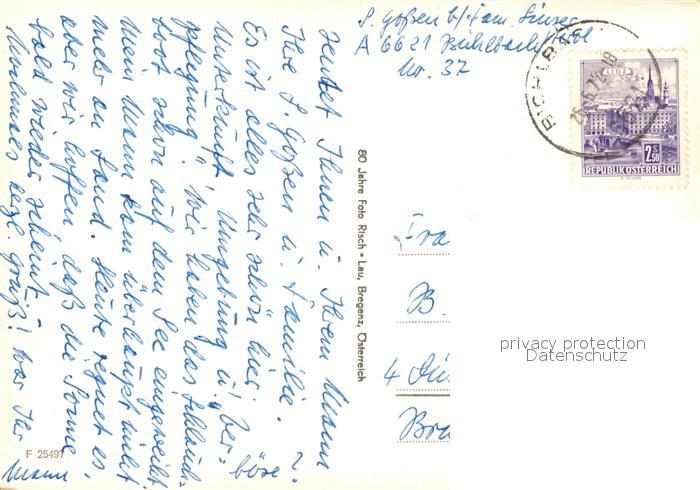 S. Goßen b/Fam. Singer
A 6621 Bichlbach/Tirol
No. 37
BICHLBACH
6621
LINZ
2.S50
REPUBLIK ÖSTERREICH
sendet Ihnen u. Ihrem Mann
Ihre S. Goßen u. Familie.
Es ist alles sehr schön hier.
Unterkunft, Umgebung u. Ver-
pflegung. Wir haben das Schlauch-
boot schon auf dem See eingeweiht.
Mein Mann kam überhaupt nicht
mehr an Land. Heute regnet es,
aber wir hoffen, daß die Sonne
bald wieder scheint.
herzl. Gruß! War Ihr
Mann
böse?
80 Jahre Foto Risch-Lau, Bregenz, Österreich
F 25497
Fra
B.
4 Dü
Bra
privacy protection
Datenschutz